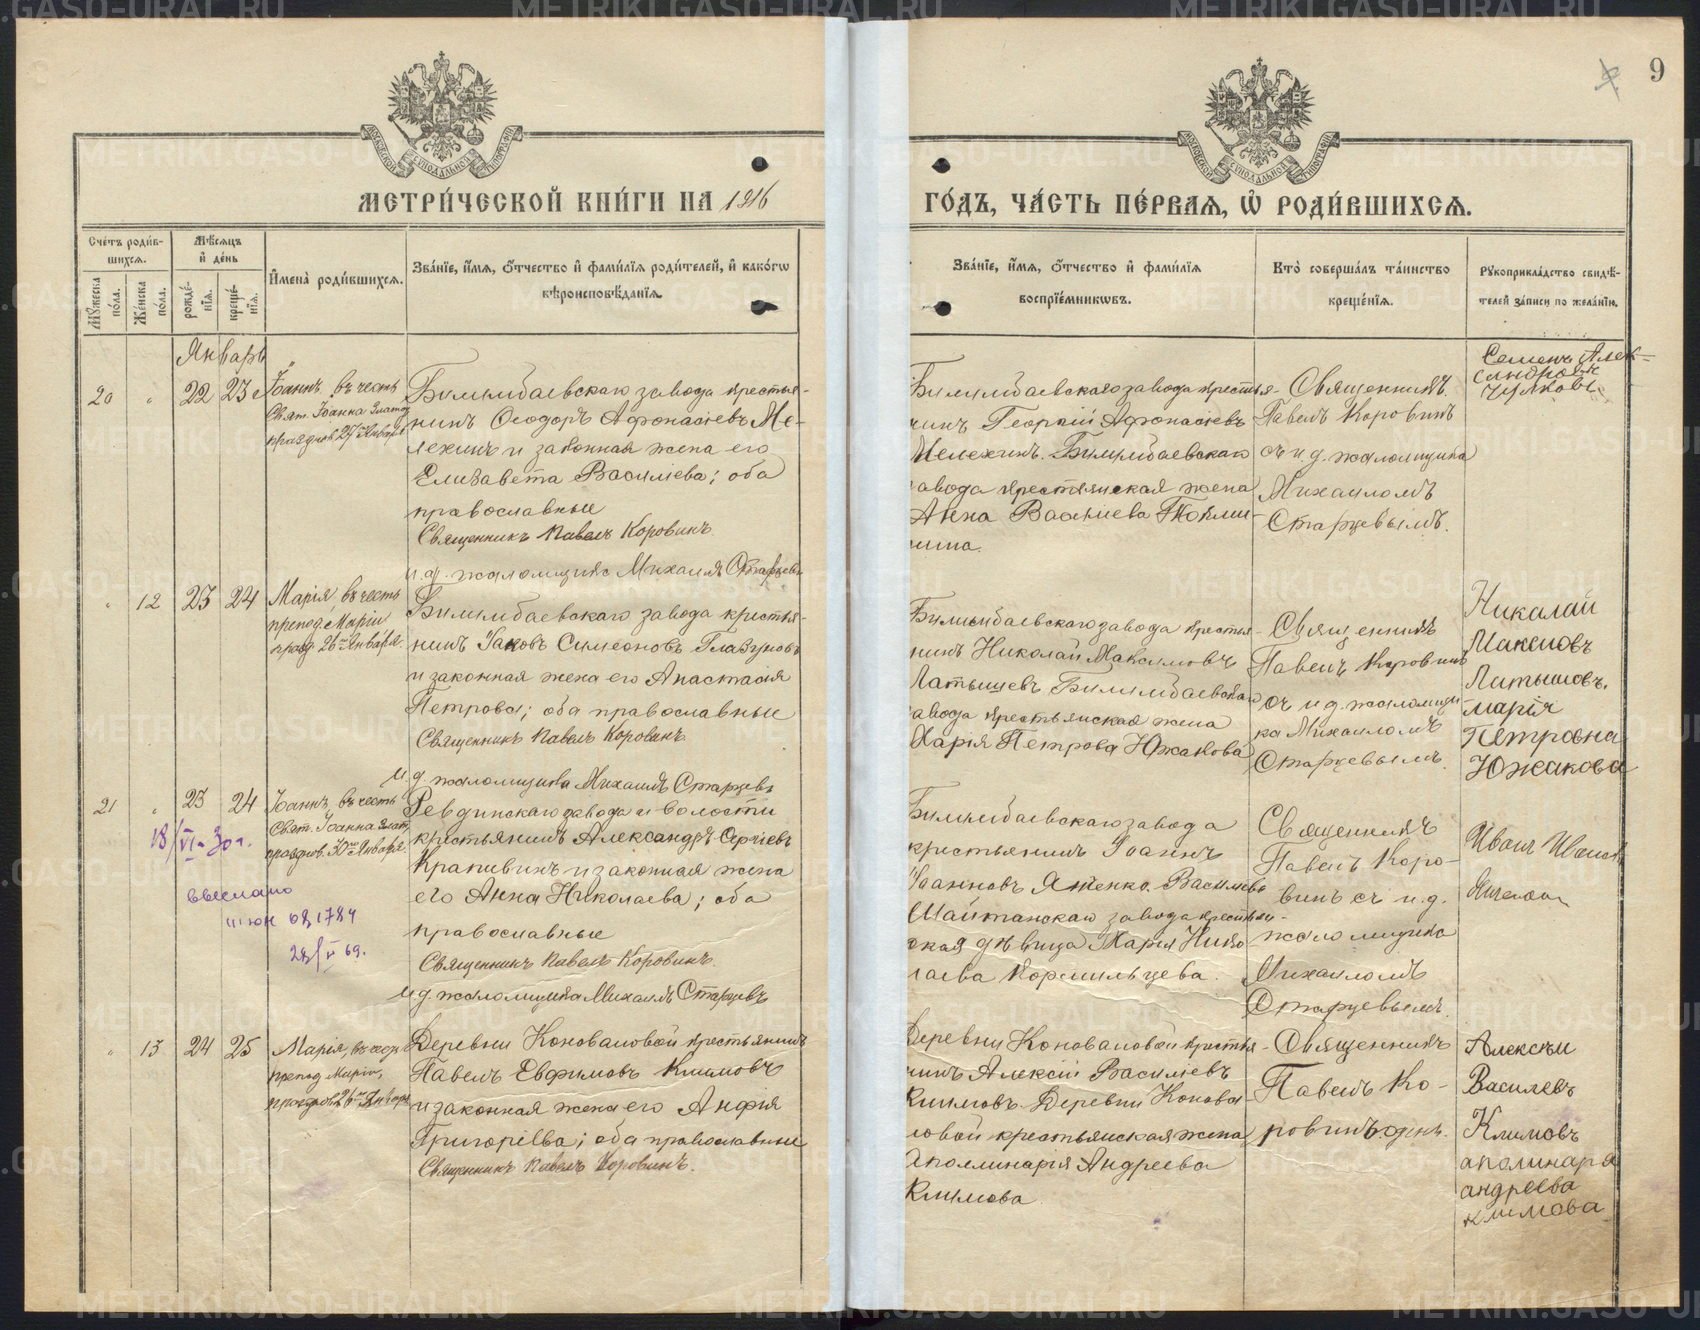 9
МЕТРИ́ЧЕСКОЙ КНИ́ГИ НА 1916
ГО́ДЪ, ЧА́СТЬ ПЕ́РВАЯ, Ѡ҆ РОДИ́ВШИХСЯ.
Сче́тъ роди́в-
шихся.
Му́жеска по́ла.
Же́нска по́ла.
Мѣ́сяцъ
и҆ де́нь
рожде́-
нїя.
креще́-
нїя.
И҆мена̀ роди́вшихся.
Зва́нїе, и҆́мя, ѻ҆́тчество и҆ фами́лїя роди́телей, и҆ како́гѡ
вѣроисповѣ́данїя.
Зва́нїе, и҆́мя, ѻ҆́тчество и҆ фами́лїя
воспрїе́мникѡвъ.
Кто̀ соверша́лъ та́инство
креще́нїя.
Рꙋкоприкла́дство свидѣ́-
телей за́писи по жела́нїю.
Январь
20 " 22 23
Іоаннъ, въ честь
Свят. Іоанна Златоу
празднов. 27го Января
Билимбаевскаго завода крестья-
нинъ Ѳеодоръ Афонасіевъ Ме-
лехинъ и законная жена его
Елизавета Василіева; оба
православные
Священникъ Павелъ Коровинъ.
и.д. псаломщика Михаилъ Старцевъ
Билимбаевскаго завода крестья-
нинъ Георгій Афонасіевъ
Мелехинъ. Билимбаевскаго
завода крестьянская жена
Анна Василіева
Священникъ
Павелъ Коровинъ
съ и д. псаломщика
Михаиломъ
Старцевымъ.
Семенъ Алек-
сандровъ
" 12 23 24
Марія, въ честь
препод. Маріи
празд. 26го Января.
Билимбаевскаго завода крестья-
нинъ Іаковъ Симеоновъ Глазуновъ
и законная жена его Анастасія
Петрова; оба православные
Священникъ Павелъ Коровинъ
И д. псаломщика Михаилъ Старцевъ
Билимбаевскаго завода крестья-
нинъ Николай Максимовъ
Латышевъ Билимбаевскаго
завода крестьянская жена
Марія Петрова Южакова
Священникъ
Павелъ Коровинъ
съ и д. псаломщи
ка Михаиломъ
Старцевымъ.
Николай
Максиовъ
Латышовъ.
марія
Петровна
Южакова
21 " 23 24
Іоаннъ, въ честь
Свят. Іоанна Злат.
празднов. 30го Января.
18/VI-30 г.
выслано
28/V 69.
Ревдинскаго завода и волости
крестьянинъ Александръ Сергіевъ
Крапивинъ и законная жена
его Анна Николаева; оба
православные
Священникъ Павелъ Коровинъ.
И д. псаломщика Михаилъ Старцевъ
Билимбаевскаго завода
крестьянинъ Іоаннъ
Іоанновъ Василіево
Шайтанскаго завода крестьян-
ская дѣвица Марія Нико
лаева Кормильцева.
Священникъ
Павелъ Коро-
винъ съ и.д.
псаломщика
Михаиломъ
Старцевымъ.
Иванъ
" 13 24 25
Марія, въ честь
препод Маріи,
празднов. 26го Января
Деревни Коноваловой крестьянинъ
Павелъ Евфимовъ Климовъ
и законная жена его Анфія
Григоріева; оба православные
Священникъ Павелъ Коровинъ.
Деревни Коноваловой крестья-
нинъ Алексій Василіевъ
Климовъ. Деревни Конова
ловой крестьянская жена
Аполлинарія Андреева
Климова.
Священникъ
Павелъ Ко-
ровинъ одинъ.
Алексѣи
Василевъ
Климовъ
аполинаря
андреева
климова